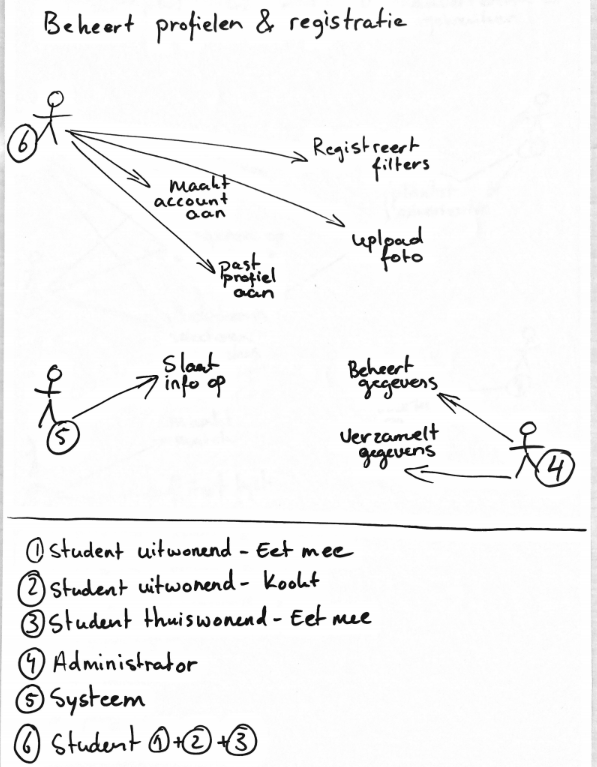 Beheert profielen & registratie
6
Registreert
filters
Maakt
account
aan
upload
foto
past
profiel
aan
Slaat
info op
5
Beheert
gegevens
Verzamelt
gegevens
4
1 Student uitwonend - Eet mee
2 Student uitwonend - Kookt
3 Student thuiswonend - Eet mee
4 Administrator
5 Systeem
6 Student 1+2+3